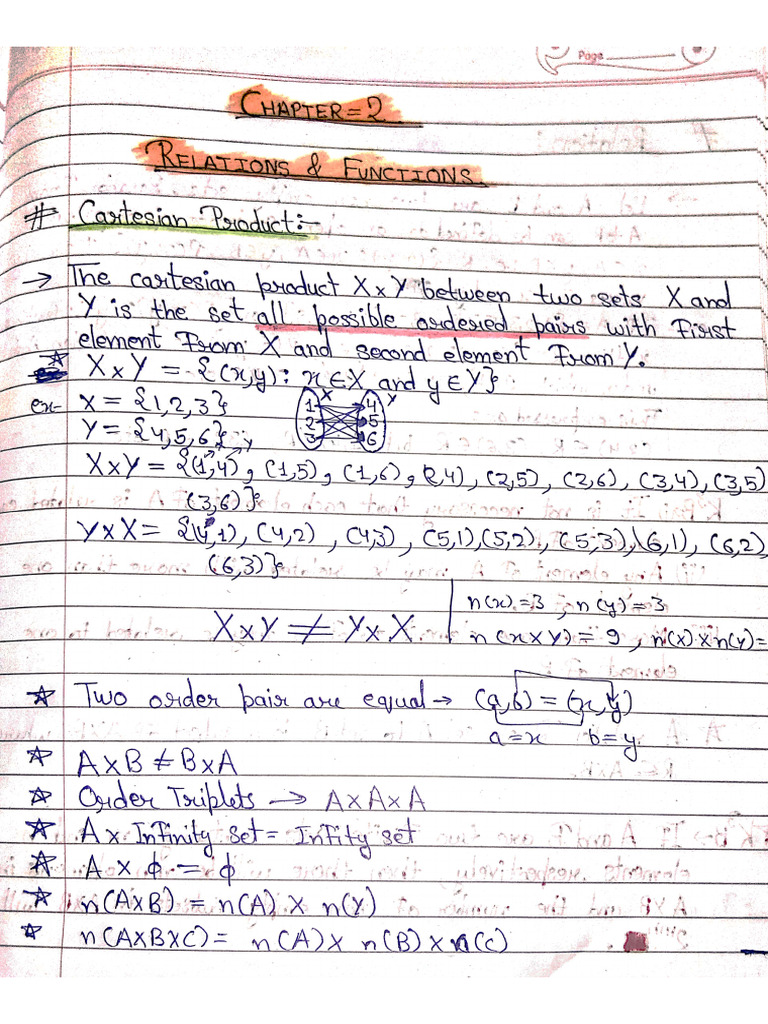 Page
CHAPTER=2
RELATIONS & FUNCTIONS
# Cartesian Product:-
→ The cartesian product X×Y between two sets X and
Y is the set all possible ordered pairs with First
element From X and second element From Y.
☆ X×Y = {(x,y): x∈X and y∈Y}
ex- X = {1,2,3}
Y = {4,5,6}
X Y
1 4
2 5
3 6
x y
X×Y = {(1,4), (1,5), (1,6), (2,4), (2,5), (2,6), (3,4), (3,5)
(3,6)}
Y×X = {(4,1), (4,2), (4,3), (5,1),(5,2), (5,3),(6,1), (6,2)
(6,3)}
X×Y ≠ Y×X
n(x)=3, n(y)=3
n(x×y)= 9, n(x)×n(y)=
☆ Two order pair are equal → (a,b) = (x,y)
a=x b=y
☆ A×B ≠ B×A
☆ Order Triplets → A×A×A
☆ A× Infinity set = Infity set
☆ A × ϕ = ϕ
☆ n(A×B) = n(A) × n(Y)
☆ n(A×B×C)= n(A)× n(B)×n(c)